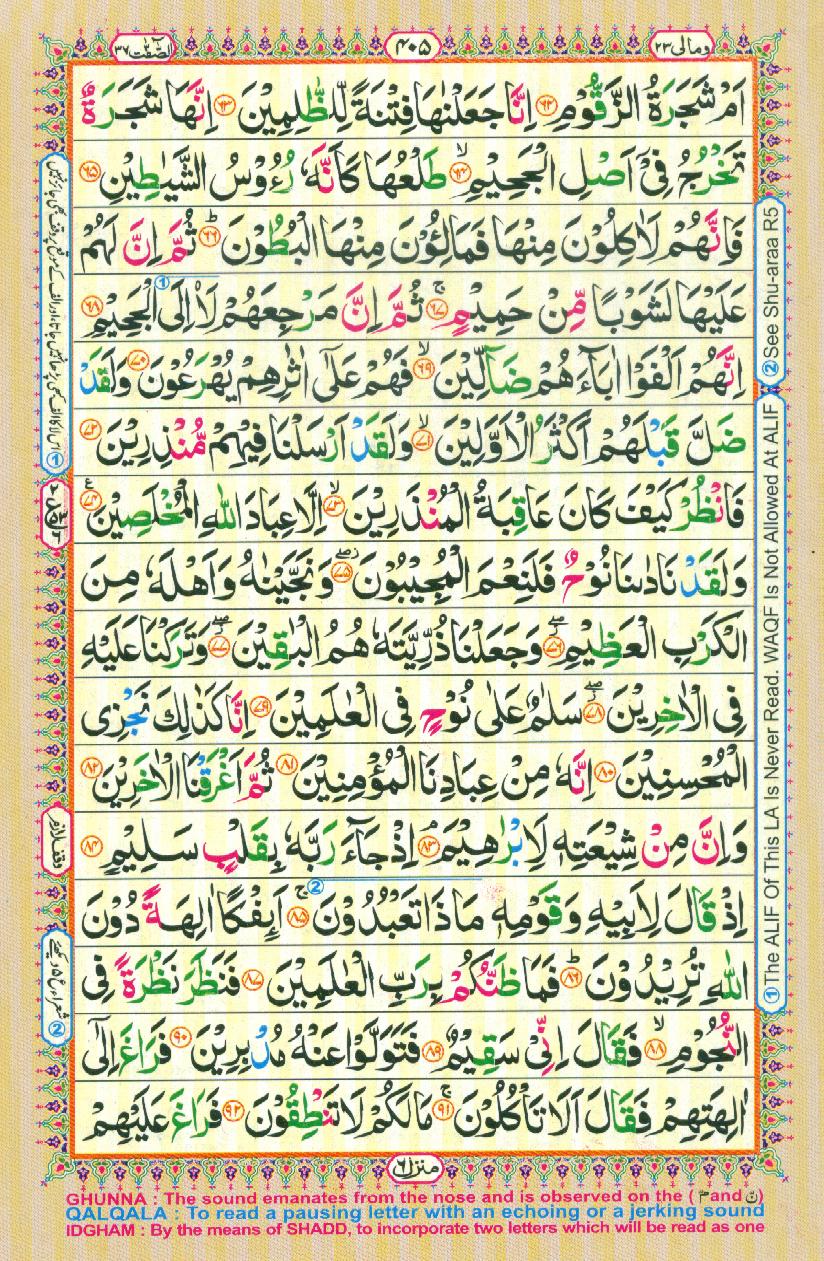 وما لی ۲۳
۴۰۵
الصّٰفّٰت ۳۷
اَمْ شَجَرَةُ الزَّقُّوْمِ ۶۲ اِنَّا جَعَلْنٰهَا فِتْنَةً لِّلظّٰلِمِيْنَ ۶۳ اِنَّهَا شَجَرَةٌ
تَخْرُجُ فِيْۤ اَصْلِ الْجَحِيْمِ ۙ ۶۴ طَلْعُهَا كَاَنَّهٗ رُءُوْسُ الشَّيٰطِيْنِ ۶۵
فَاِنَّهُمْ لَاٰكِلُوْنَ مِنْهَا فَمَالِـُٔوْنَ مِنْهَا الْبُطُوْنَ ؕ ۶۶ ثُمَّ اِنَّ لَهُمْ
عَلَيْهَا لَشَوْبًا مِّنْ حَمِيْمٍ ۚ ۶۷ ثُمَّ اِنَّ مَرْجِعَهُمْ لَا۟اِلَى الْجَحِيْمِ ۶۸
اِنَّهُمْ اَلْفَوْا اٰبَآءَهُمْ ضَآلِّيْنَ ۙ ۶۹ فَهُمْ عَلٰۤى اٰثٰرِهِمْ يُهْرَعُوْنَ ۷۰ وَلَقَدْ
ضَلَّ قَبْلَهُمْ اَكْثَرُ الْاَوَّلِيْنَ ۙ ۷۱ وَلَقَدْ اَرْسَلْنَا فِيْهِمْ مُّنْذِرِيْنَ ۷۲
فَانْظُرْ كَيْفَ كَانَ عَاقِبَةُ الْمُنْذَرِيْنَ ۙ ۷۳ اِلَّا عِبَادَ اللّٰهِ الْمُخْلَصِيْنَ ۠ ۷۴
وَلَقَدْ نَادٰىنَا نُوْحٌ فَلَنِعْمَ الْمُجِيْبُوْنَ ۖ ۷۵ وَنَجَّيْنٰهُ وَاَهْلَهٗ مِنَ
الْكَرْبِ الْعَظِيْمِ ۖ ۷۶ وَجَعَلْنَا ذُرِّيَّتَهٗ هُمُ الْبٰقِيْنَ ۖ ۷۷ وَتَرَكْنَا عَلَيْهِ
فِي الْاٰخِرِيْنَ ۖ ۷۸ سَلٰمٌ عَلٰى نُوْحٍ فِي الْعٰلَمِيْنَ ۷۹ اِنَّا كَذٰلِكَ نَجْزِي
الْمُحْسِنِيْنَ ۸۰ اِنَّهٗ مِنْ عِبَادِنَا الْمُؤْمِنِيْنَ ۸۱ ثُمَّ اَغْرَقْنَا الْاٰخَرِيْنَ ۸۲
وَاِنَّ مِنْ شِيْعَتِهٖ لَاِبْرٰهِيْمَ ۘ ۸۳ اِذْ جَآءَ رَبَّهٗ بِقَلْبٍ سَلِيْمٍ ۸۴
اِذْ قَالَ لِاَبِيْهِ وَقَوْمِهٖ مَاذَا تَعْبُدُوْنَ ۚ ۸۵ اَئِفْكًا اٰلِهَةً دُوْنَ
اللّٰهِ تُرِيْدُوْنَ ؕ ۸۶ فَمَا ظَنُّكُمْ بِرَبِّ الْعٰلَمِيْنَ ۸۷ فَنَظَرَ نَظْرَةً فِي
النُّجُوْمِ ۙ ۸۸ فَقَالَ اِنِّيْ سَقِيْمٌ ۸۹ فَتَوَلَّوْا عَنْهُ مُدْبِرِيْنَ ۹۰ فَرَاغَ اِلٰۤى
اٰلِهَتِهِمْ فَقَالَ اَلَا تَاْكُلُوْنَ ۚ ۹۱ مَا لَكُمْ لَا تَنْطِقُوْنَ ۹۲ فَرَاغَ عَلَيْهِمْ
منزل ۶
② See Shu-araa R5
① The ALIF Of This LA Is Never Read. WAQF Is Not Allowed At ALIF
وقف لازم
GHUNNA : The sound emanates from the nose and is observed on the ( مّ and نّ )
QALQALA : To read a pausing letter with an echoing or a jerking sound
IDGHAM : By the means of SHADD, to incorporate two letters which will be read as one